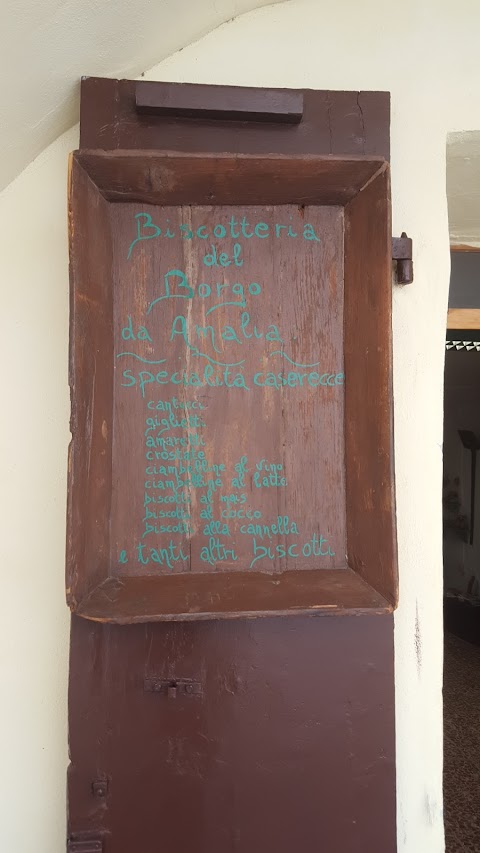 Biscotteria
del
Borgo
da Amalia
specialità caserecce
cantucci
giglietti
amaretti
crostate
ciambelline al vino
ciambelline al latte
biscotti al mais
biscotti al cocco
biscotti alla cannella
e tanti altri biscotti